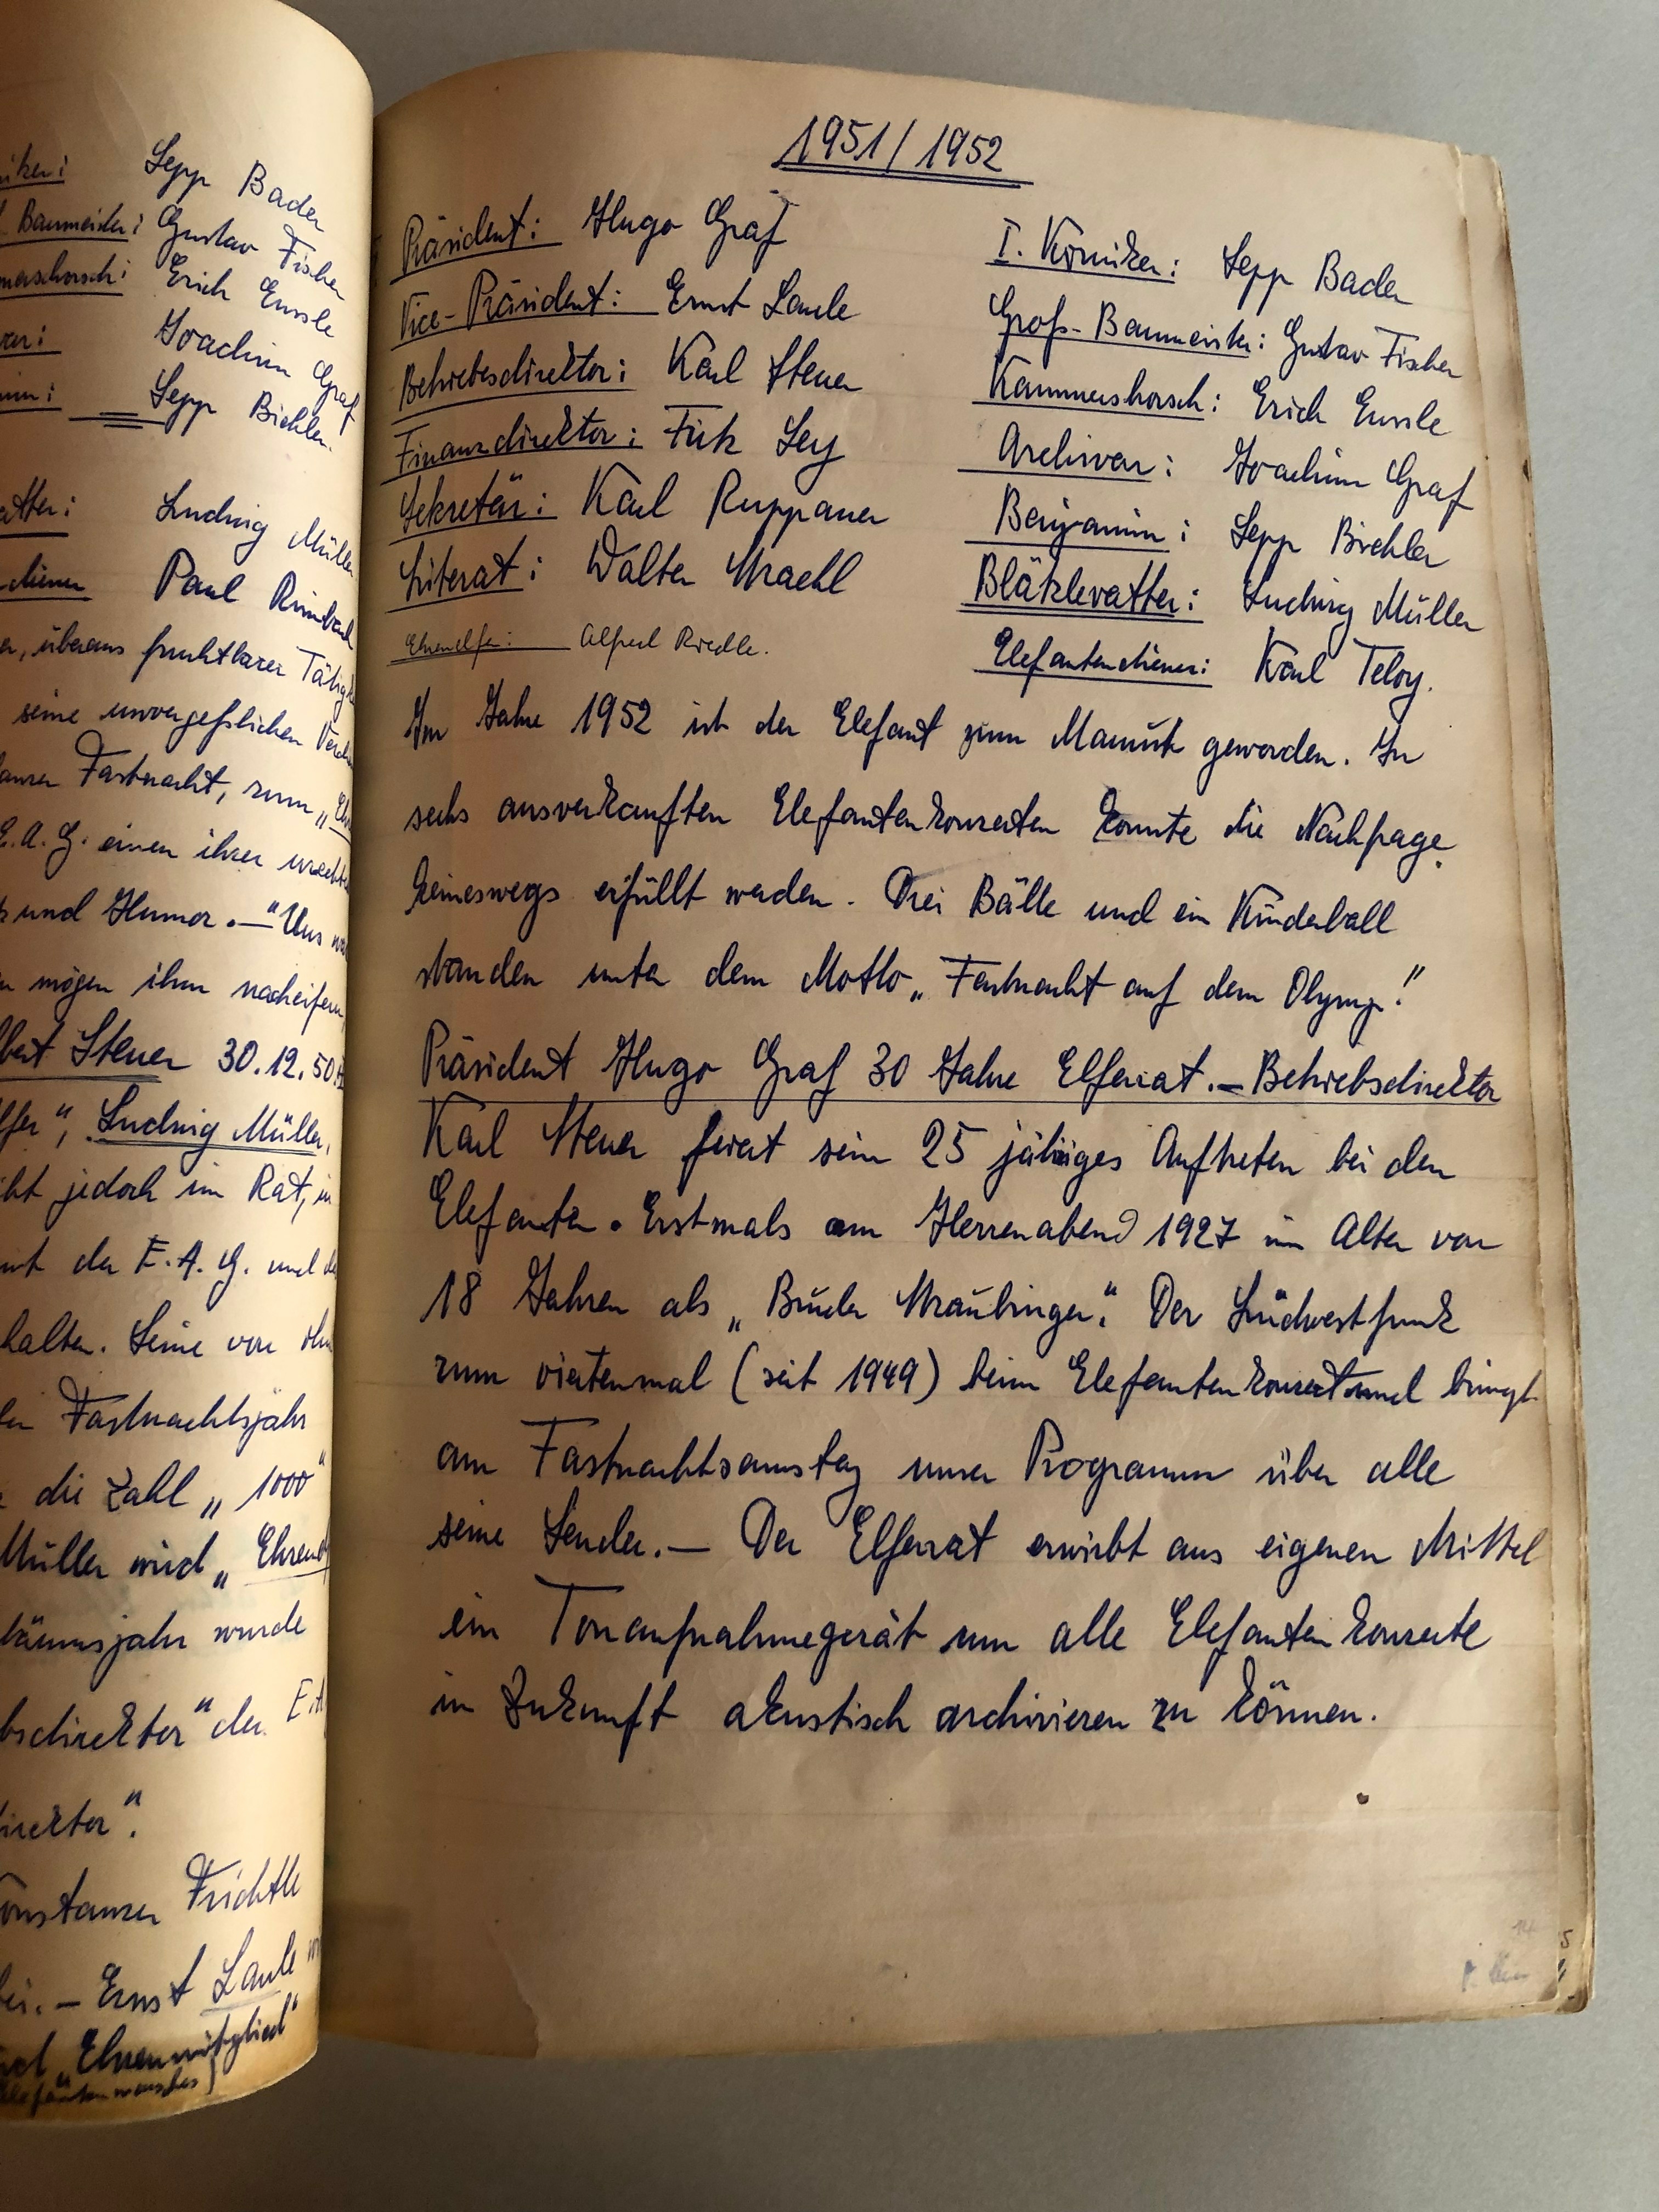 Sepp Bader
Baumeister: Gustav Fischer
Erich Eursle
Joachim Graf
Sepp Biehler.
Ludwig Müller
Paul
überaus fruchtbarer
seine unvergeßlichen
Fastnacht, zum „
E.A.G. einen ihrer
und Humor. — "Uns
mögen ihm nacheifern
Steuer 30.12.50
", Ludwig Müller,
jedoch im Rat, in
der E.A.G. und
halten. Seine von
Fastnachtsjahr
die Zahl „1000"
Müller wird „
wurde
" der
".
Ernst Laule
„Ehrenmitglied"
1951/1952
Präsident: Hugo Graf
Vice-Präsident: Ernst Laule
Betriebsdirektor: Karl Steuer
Finanzdirektor: Fritz Ley
Sekretär: Karl Ruppaner
Literat: Walter Maehl
Ehrenelfer: Alfred Riedle.
I. Komiker: Sepp Bader
Groß-Baumeister: Gustav Fischer
Kammershorsch: Erich Eursle
Archivar: Joachim Graf
Benjamin: Sepp Biehler
Blätzlevatter: Ludwig Müller
Elefantendiener: Karl Teloy.
Im Jahre 1952 ist der Elefant zum Mamut geworden. In
sechs ausverkauften Elefantenkonzerten konnte die Nachfrage
keineswegs erfüllt werden. Drei Bälle und ein Kinderball
standen unter dem Motto „Fastnacht auf dem Olymp!"
Präsident Hugo Graf 30 Jahre Elferrat. — Betriebsdirektor
Karl Steuer feiert sein 25 jähriges Auftreten bei den
Elefanten. Erstmals am Herrenabend 1927 im Alter von
18 Jahren als „Bruder Straubinger". Der Südwestfunk
zum viertenmal (seit 1949) beim Elefantenkonzert und bringt
am Fastnachtsamstag unser Programm über alle
seine Sender. — Der Elferrat erwirbt aus eigenen Mittel
ein Tonaufnahmegerät um alle Elefantenkonzerte
in Zukunft akustisch archivieren zu können.